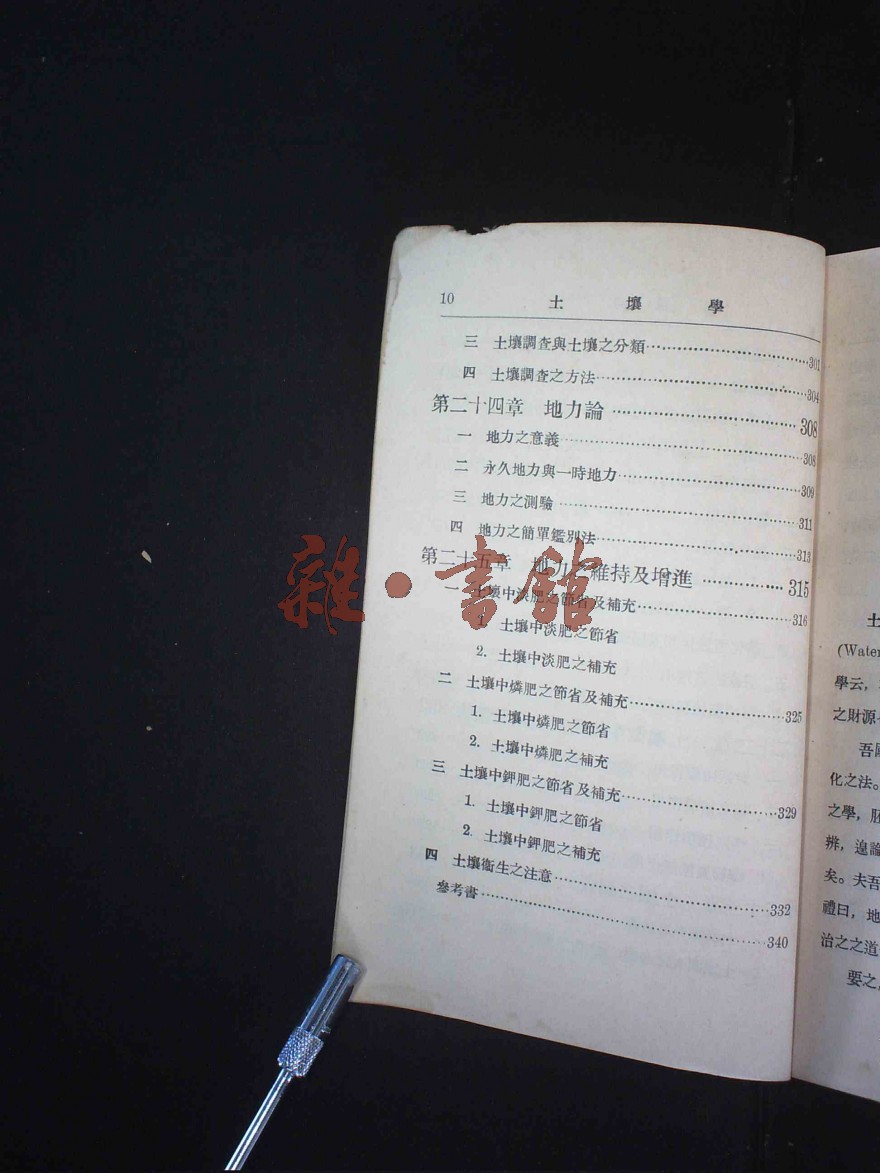 10 土壤學
三 土壤調查與土壤之分類 301
四 土壤調查之方法 304
第二十四章 地力論 308
一 地力之意義 308
二 永久地力與一時地力 309
三 地力之測驗 311
四 地力之簡單鑑別法 313
第二十五章 地力之維持及增進 315
一 土壤中淡肥之節省及補充 316
1. 土壤中淡肥之節省
2. 土壤中淡肥之補充
二 土壤中燐肥之節省及補充 325
1. 土壤中燐肥之節省
2. 土壤中燐肥之補充
三 土壤中鉀肥之節省及補充 329
1. 土壤中鉀肥之節省
2. 土壤中鉀肥之補充
四 土壤衞生之注意 332
參考書 340
雜·書館
土
(Water
學云,
之財源
吾國
化之法。
之學,
辨,遑論
矣。夫吾
禮曰,地
治之之道
要之,